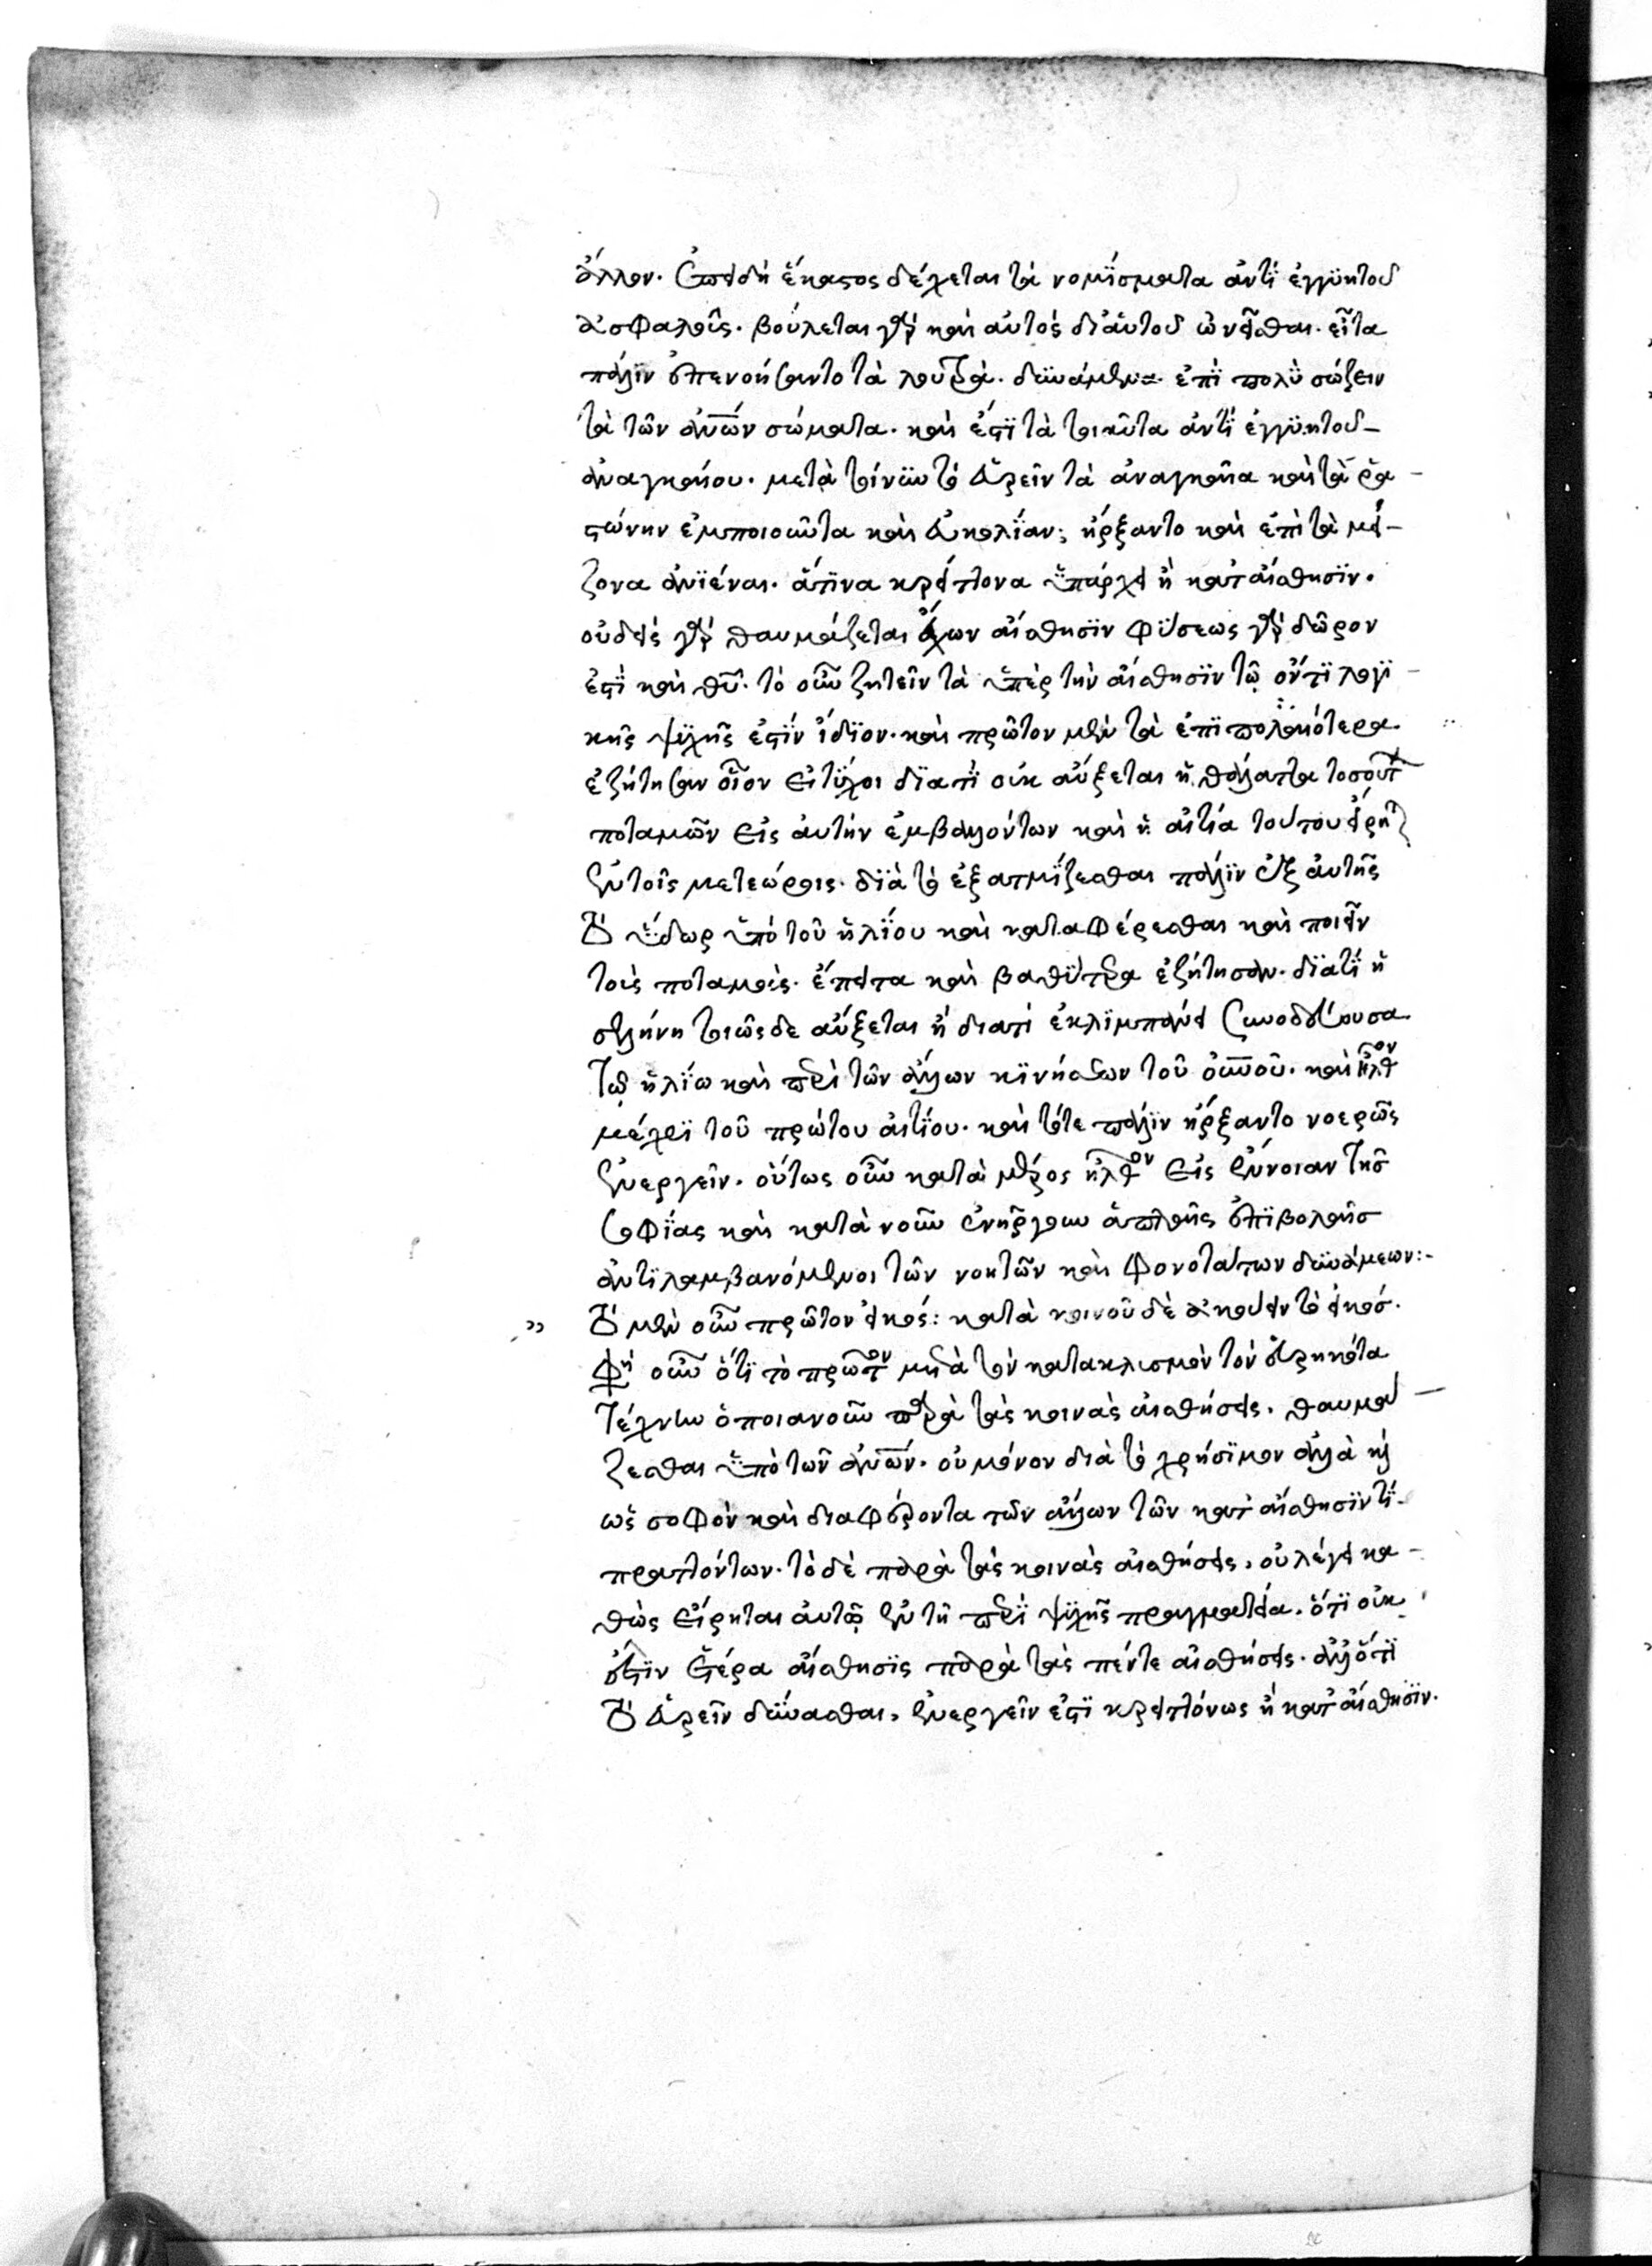 ἄλλον. ἐπειδὴ ἕκαστος δέχεται τὰ νομΐσματα ἀντῒ ἐγγϋητοῦ
ἀσφαλοῦς. βούλεται γὰρ καὶ αὐτὸς δι' αὐτοῦ ὠνεῖσθαι. εἶτα
πάλϊν ἐπενοήσαντο τὰ λουτρὰ. δϋνάμενα ἐπῒ πολῢ σώζειν
τὰ τῶν ἀνῶν σώματα. καὶ ἔστϊ τὰ τοιαῦτα ἀντῒ ἐγγϋητοῦ
ἀναγκαίου. μετὰ τοίνϋν τὸ εὑρεῖν τὰ ἀναγκαῖα καὶ τὰ ῥα
στώνην ἐμποιοῦντα καὶ εὐκολΐαν; ἤρξαντο καὶ ἐπὶ τὰ μεί
ζονα ἀνϊέναι. ἅτϊνα κρείττονα ὑπάρχει ἢ κατ' αἴσθησϊν.
οὐδεὶς γὰρ θαυμάζεται ἔχων αἴσθησϊν φΰσεως γὰρ δῶρον
ἐστῒ καὶ θῦ. τὸ οὖν ζητεῖν τὰ ὑπὲρ τὴν αἴσθησϊν τῷ ὄντϊ λογϊ
κῆς ψϋχῆς ἐστῒν ἴδϊον. καὶ πρῶτον μὲν τὰ ἐπϊπολαιότερα
ἐζήτησαν οἷον εἰ τΰχοι δϊατῒ οὐκ αὔξεται ἡ θάλαττα τοσούτ
ποταμῶν εἰς αὐτὴν ἐμβαλόντων καὶ ἡ αἰτία τούτου εἴρητ
ἐν τοῖς μετεώροις. δϊὰ τὸ ἐξατμΐζεσθαι πάλϊν ἐξ αὐτῆς
τὸ ὕδωρ ὑπὸ τοῦ ἡλΐου καὶ καταφέρεσθαι καὶ ποιεῖν
τοὺς ποταμοὺς. ἔπειτα καὶ βαθΰτερα ἐζήτησαν. δϊατῒ ἡ
σελήνη τοιῶςδε αὔξεται ἢ διατὶ ἐκλϊμπάνει συνοδεύουσα
τῷ ἡλΐω καὶ περὶ τῶν ἄλλων κϊνήσεων τοῦ οὐνοῦ. καὶ ἦλθον
μέχρϊ τοῦ πρώτου αἰτΐου. καὶ τότε πάλϊν ἤρξαντο νοερῶς
ἐνεργεῖν. οὕτως οὖν κατὰ μέρος ἦλθον εἰς ἔννοιαν τῆς
σοφΐας καὶ κατὰ νοῦν ἐνήργουν ἁπλαῖς ἐπϊβολαῖς
ἀντϊλαμβανόμενοι τῶν νοητῶν καὶ φονοτάτων δϋνάμεων:-
τὸ μὲν οὖν πρῶτον εἰκός: κατὰ κοινοῦ δὲ ἀκούειν τὸ εἰκός.
φη οὖν ὅτϊ τὸ πρῶτον μετὰ τὸν κατακλισμὸν τὸν εὑρηκότα
τέχνην ὁποιανοῦν παρὰ τὰς κοινὰς αἰσθήσεις. θαυμά
ζεσθαι ὑπὸ τῶν ἀνῶν. οὐ μόνον διὰ τὸ χρήσϊμον ἀλλὰ κὶ
ὡς σοφὸν καὶ διαφέροντα τῶν ἄλλων τῶν κατ' αἴσθησϊν τῒ
πραττόντων. τὸ δὲ παρὰ τὰς κοινὰς αἰσθήσεις. οὐ λέγει κα
θὼς εἴρηται αὐτῷ ἐν τῆ περῒ ψϋχῆς πραγματεία. ὅτϊ οὐκ
ἔστϊν ἑτέρα αἴσθησϊς παρὰ τὰς πέντε αἰσθήσεις. ἀλλ' ὅτϊ
τὸ εὑρεῖν δΰνασθαι. ἐνεργεῖν ἐστῒ κρειττόνως ἢ κατ' αἴσθησϊν.